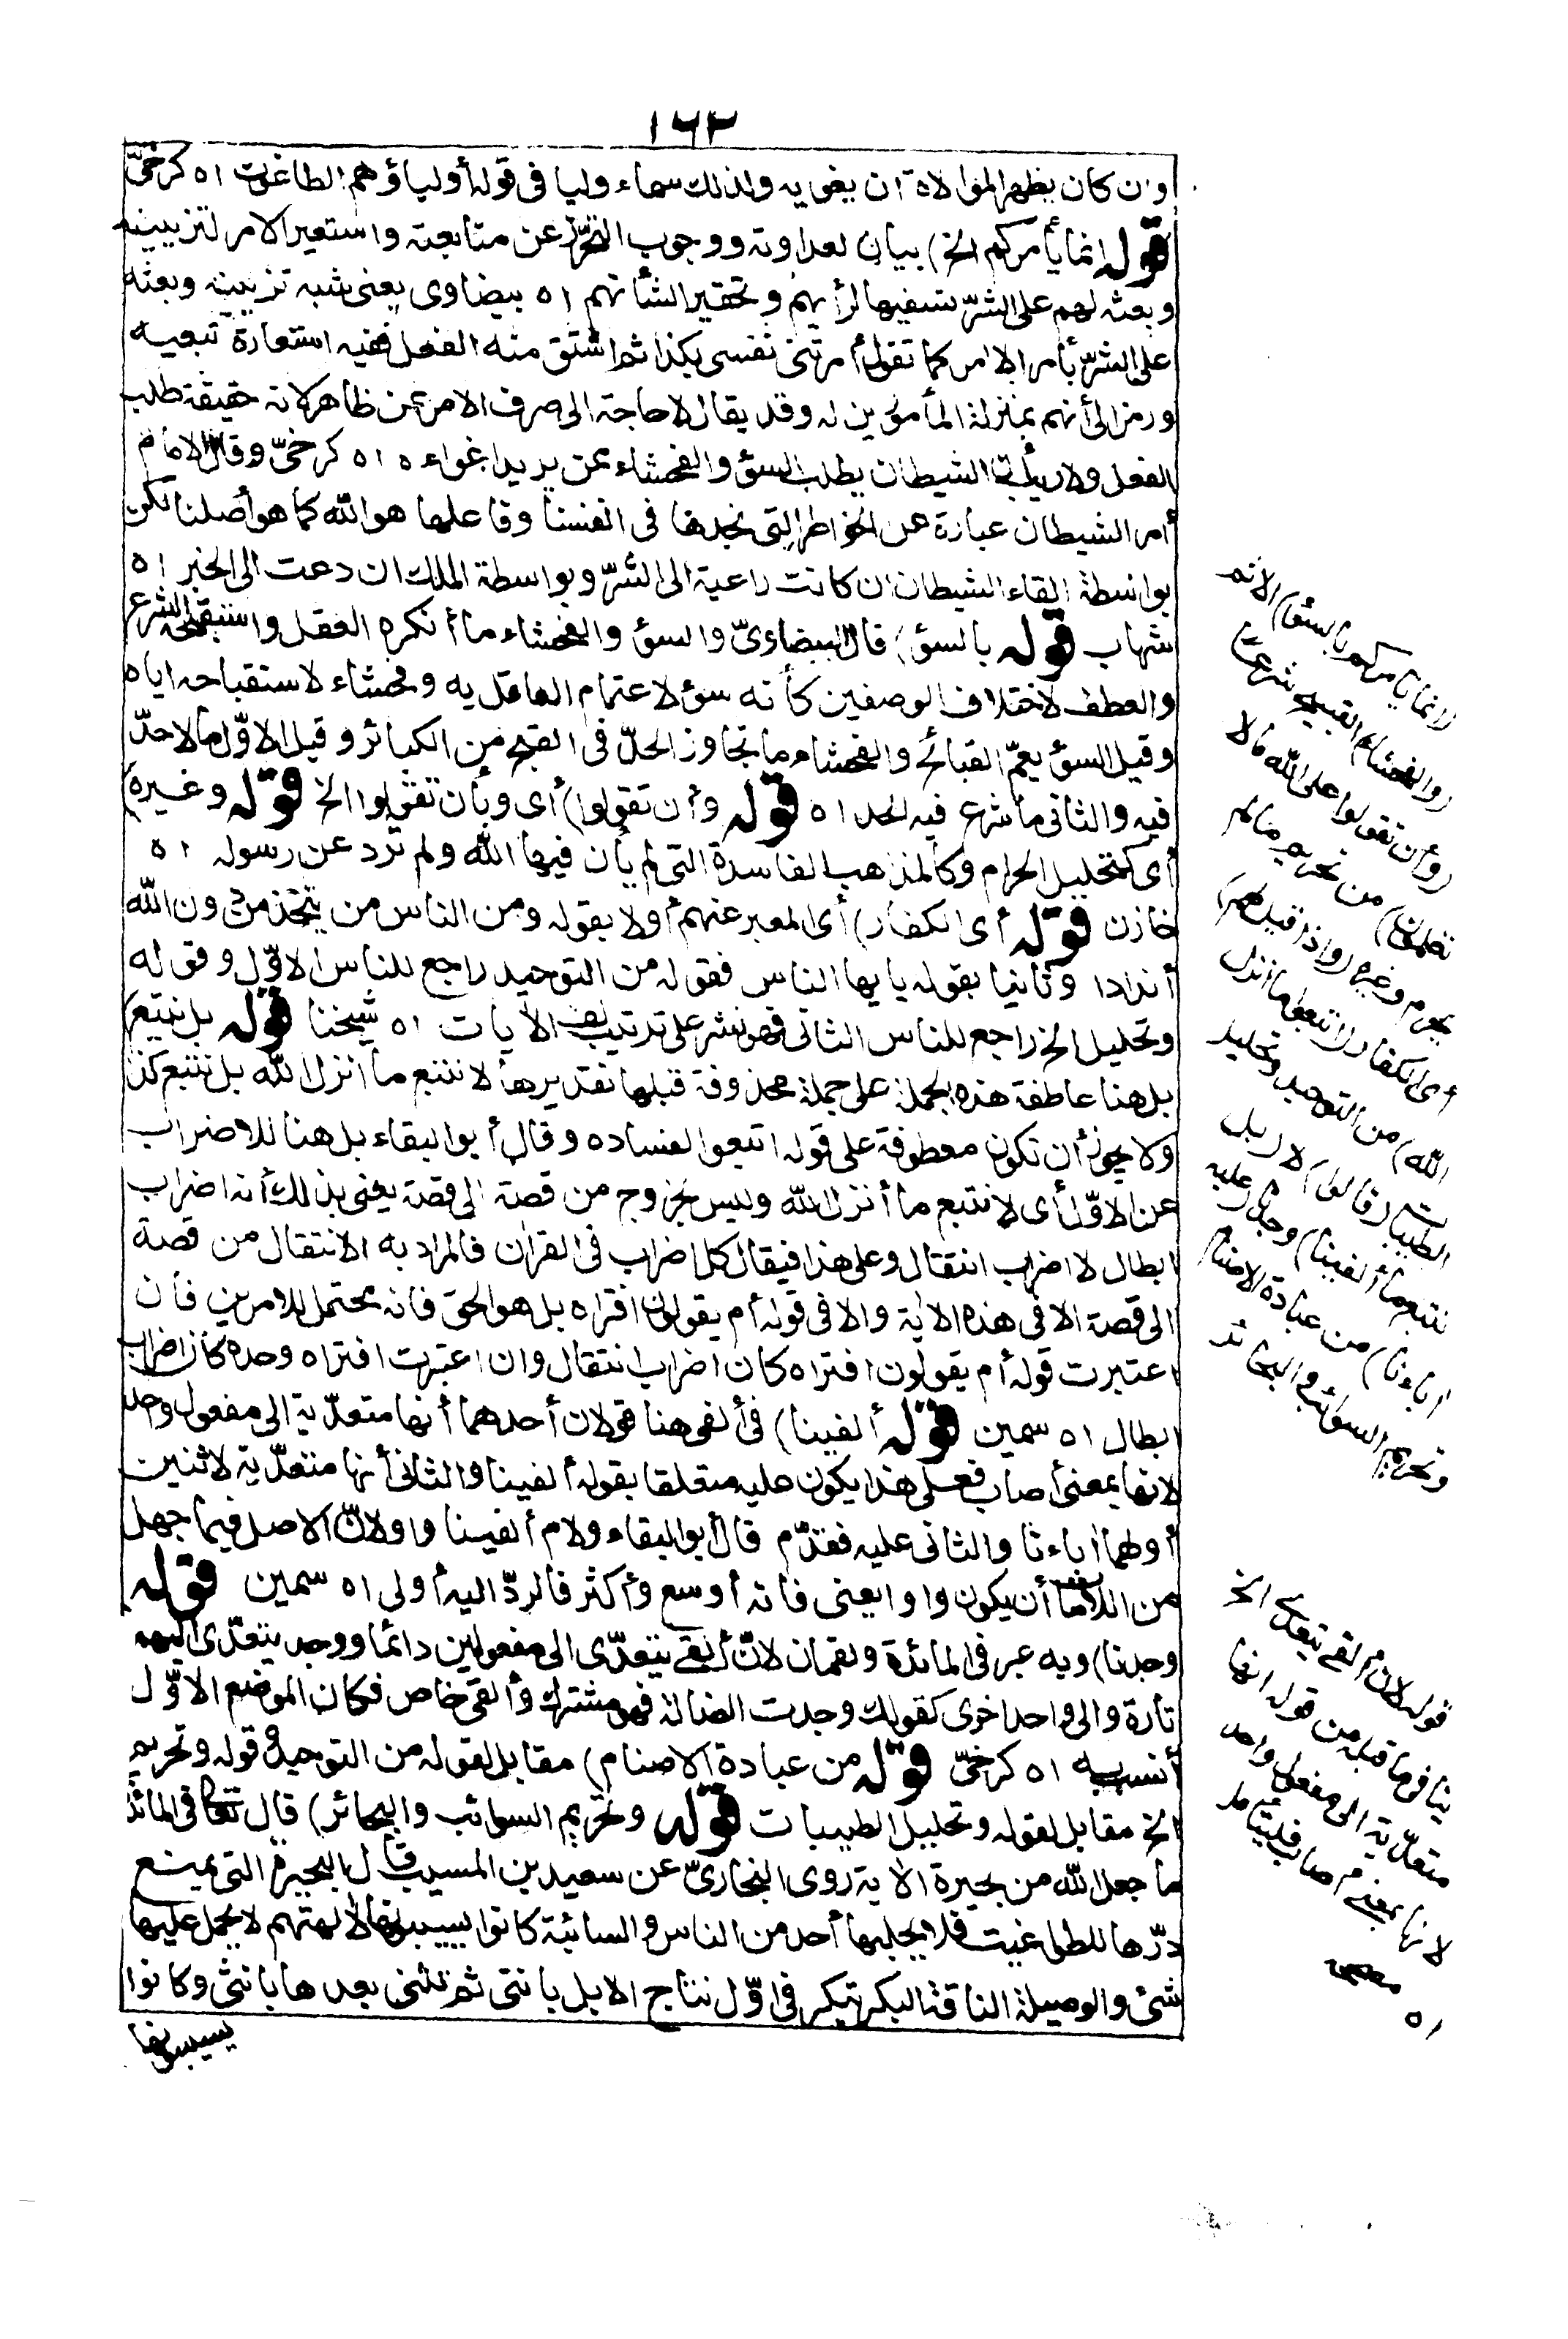 ١٦٣
وان كان يظهر الموالاة ان يغويه ولذلك سماه وليا فى قوله أولياؤهم الطاغوت اه كرخىّ
قوله انما يأمركم الخ) بيان لعداوته ووجوب التحرّز عن متابعته واستعير الامر لتزيينه
وبعثه لهم على الشرّ تسفيها لرأيهم وتحقيرا لشأنهم اه بيضاوى يعنى شبه تزيينه وبعثه
على الشرّ بأمر الامر كما تقول أمرتنى نفسى بكذا ثم اشتق منه الفعل ففيه استعارة تبعيه
ورمز الى أنهم بمنزلة المأمورين له وقد يقال لا حاجة الى صرف الامر عن ظاهره لانه حقيقة طلب
الفعل ولا ريب أن الشيطان يطلب السوٓ والفحشاء ممن يريد اغواءه اه كرخىّ وقال الامام
أمر الشيطان عبارة عن الخواطر التى نجدها فى انفسنا وفاعلها هو الله كما هو أصلنا لكن
بواسطة القاء الشيطان ان كانت داعية الى الشرّ وبواسطة الملك ان دعت الى الخير اه
شهاب قوله بالسوٓ) قال البيضاوىّ والسوٓ والفحشاء ما أنكره العقل واستقبحه الشرع
والعطف لاختلاف الوصفين كأنه سوٓ لاغتمام العاقل به وفحشاء لاستقباحه اياه
وقيل السوٓ يعمّ القبائح والفحشاء ما تجاوز الحدّ فى القبح من الكبائر وقيل الاوّل ما لا حدّ
فيه والثانى ما شرع فيه الحد اه قوله وأن تقولوا) أى وبأن تقولوا الخ قوله وغيره)
أى كتحليل الحرام وكالمذهب الفاسدة التى لم يأذن فيها الله ولم ترد عن رسوله اه
خازن قوله أى الكفار) أى المعبر عنهم أولا بقوله ومن الناس من يتخذ من دون الله
أندادا وثانيا بقوله يا يها الناس فقوله من التوحيد راجع للناس الاوّل وقوله
وتحليل الخ راجع للناس الثانى فهو نشر على ترتيب لف الأيات اه شيخنا قوله بل نتبع)
بل هنا عاطفة هذه الجملة على جملة محذوفة قبلها تقديرها لا نتبع ما أنزل الله بل نتبع كذا
ولا يجوز أن تكون معطوفة على قوله اتبعوا لفساده وقال أبو البقاء بل هنا للاضراب
عن الاوّل أى لا نتبع ما أنزل الله وليس بخروج من قصة الى قصة يعنى بذلك أنه اضراب
ابطال لا اضراب انتقال وعلى هذا فيقال كل اضراب فى القرآن فالمراد به الانتقال من قصة
الى قصة الا فى هذه الاٰية والا فى قوله أم يقولون افتراه بل هو الحق فانه محتمل للامرين فأن
اعتبرت قوله أم يقولون افتراه كان اضراب انتقال وان اعتبرت افتراه وحده كان اضراب
ابطال اه سمين قوله ألفينا) فى ألفى هنا قولان أحدهما أنها متعدّية الى مفعول واحد
لانها بمعنى أصاب فعلى هذا يكون عليه متعلقا بقوله ألفينا والثانى أنها متعدّية لاثنين
أولهما اٰباءنا والثانى عليه فقدّم قال أبو البقاء ولام ألفينا واو لانّ الاصل فيما جهل
من اللامات أن يكون واوا يعنى فانه أوسع وأكثر فالردّ اليه أولى اه سمين قوله
وجدنا) وبه عبر فى المائدة ولقمان لانّ ألفى يتعدّى الى مفعولين دائما ووجد يتعدّى اليهما
تارة والى واحد اخرى كقولك وجدت الضالة فهو مشترك وألفى خاص فكان الموضع الاوّل
أنسب به اه كرخىّ قوله من عبادة الاصنام) مقابل لقوله من التوحيد وقوله وتحريم
الخ مقابل لقوله وتحليل الطيبات قوله وتحريم السوائب والبحائر) قال تعالى فى المائدة
ما جعل الله من بحيرة الاٰية روى البخارىّ عن سعيد بن المسيب قال البحيرة التى يمنع
درّها للطواغيت فلا يحلبها أحد من الناس والسائبة كانوا يسيبونها لاٰلهتهم لا يحمل عليها
شئ والوصيلة الناقة البكر تبكر فى اوّل نتاج الابل بانثى ثم تثنى بعدها بانثى وكانوا
يسيبونها
(انما يأمركم بالسوٓ) الاثم
(والفحشاء) القبيح شرعا
(وأن تقولوا على الله ما لا
تعلمون) من تحريم ما لم
يحرم وغيره (واذا قيل لهم)
أى الكفار (اتبعوا ما انزل
الله) من التوحيد وتحليل
الطيبات (قالوا) لا (بل
نتبع ما ألفينا) وجدنا (عليه
اٰباءنا) من عبادة الاصنام
وتحريم السوائب والبحائر
قوله لان ألفى يتعدى الخ
ينافى ما قبله من قوله انها
متعدّية الى مفعول واحد
لانها بمعنى أصاب فليتأمل
اه مصححه